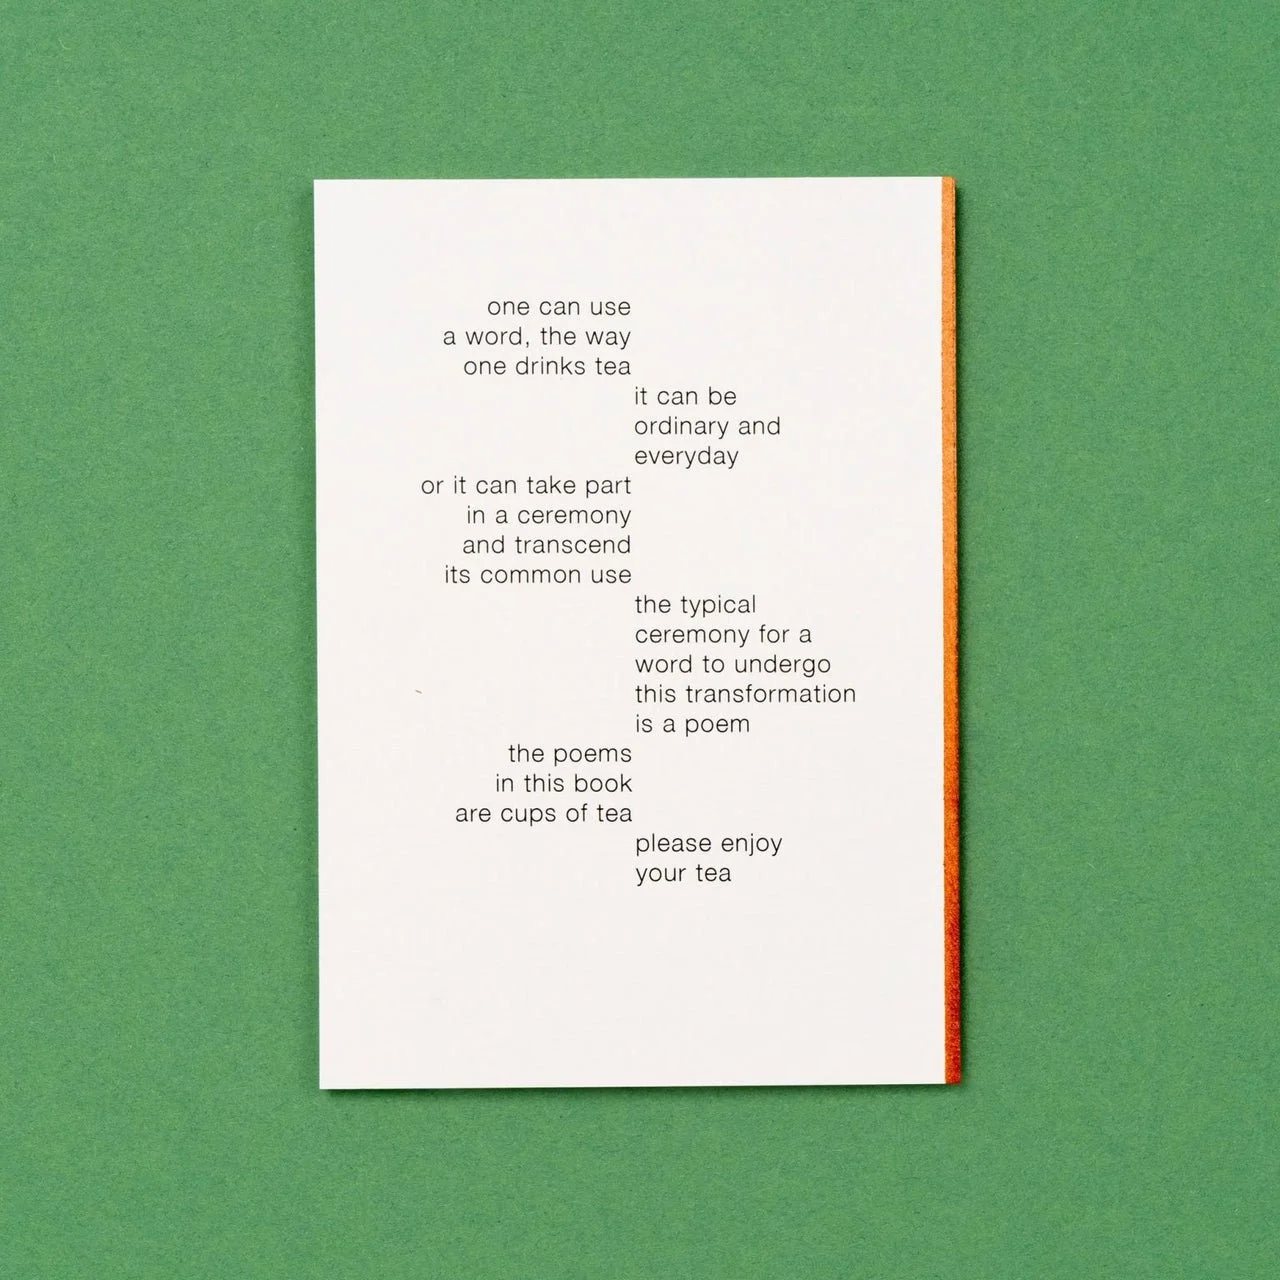 one can use
a word, the way
one drinks tea
it can be
ordinary and
everyday
or it can take part
in a ceremony
and transcend
its common use
the typical
ceremony for a
word to undergo
this transformation
is a poem
the poems
in this book
are cups of tea
please enjoy
your tea